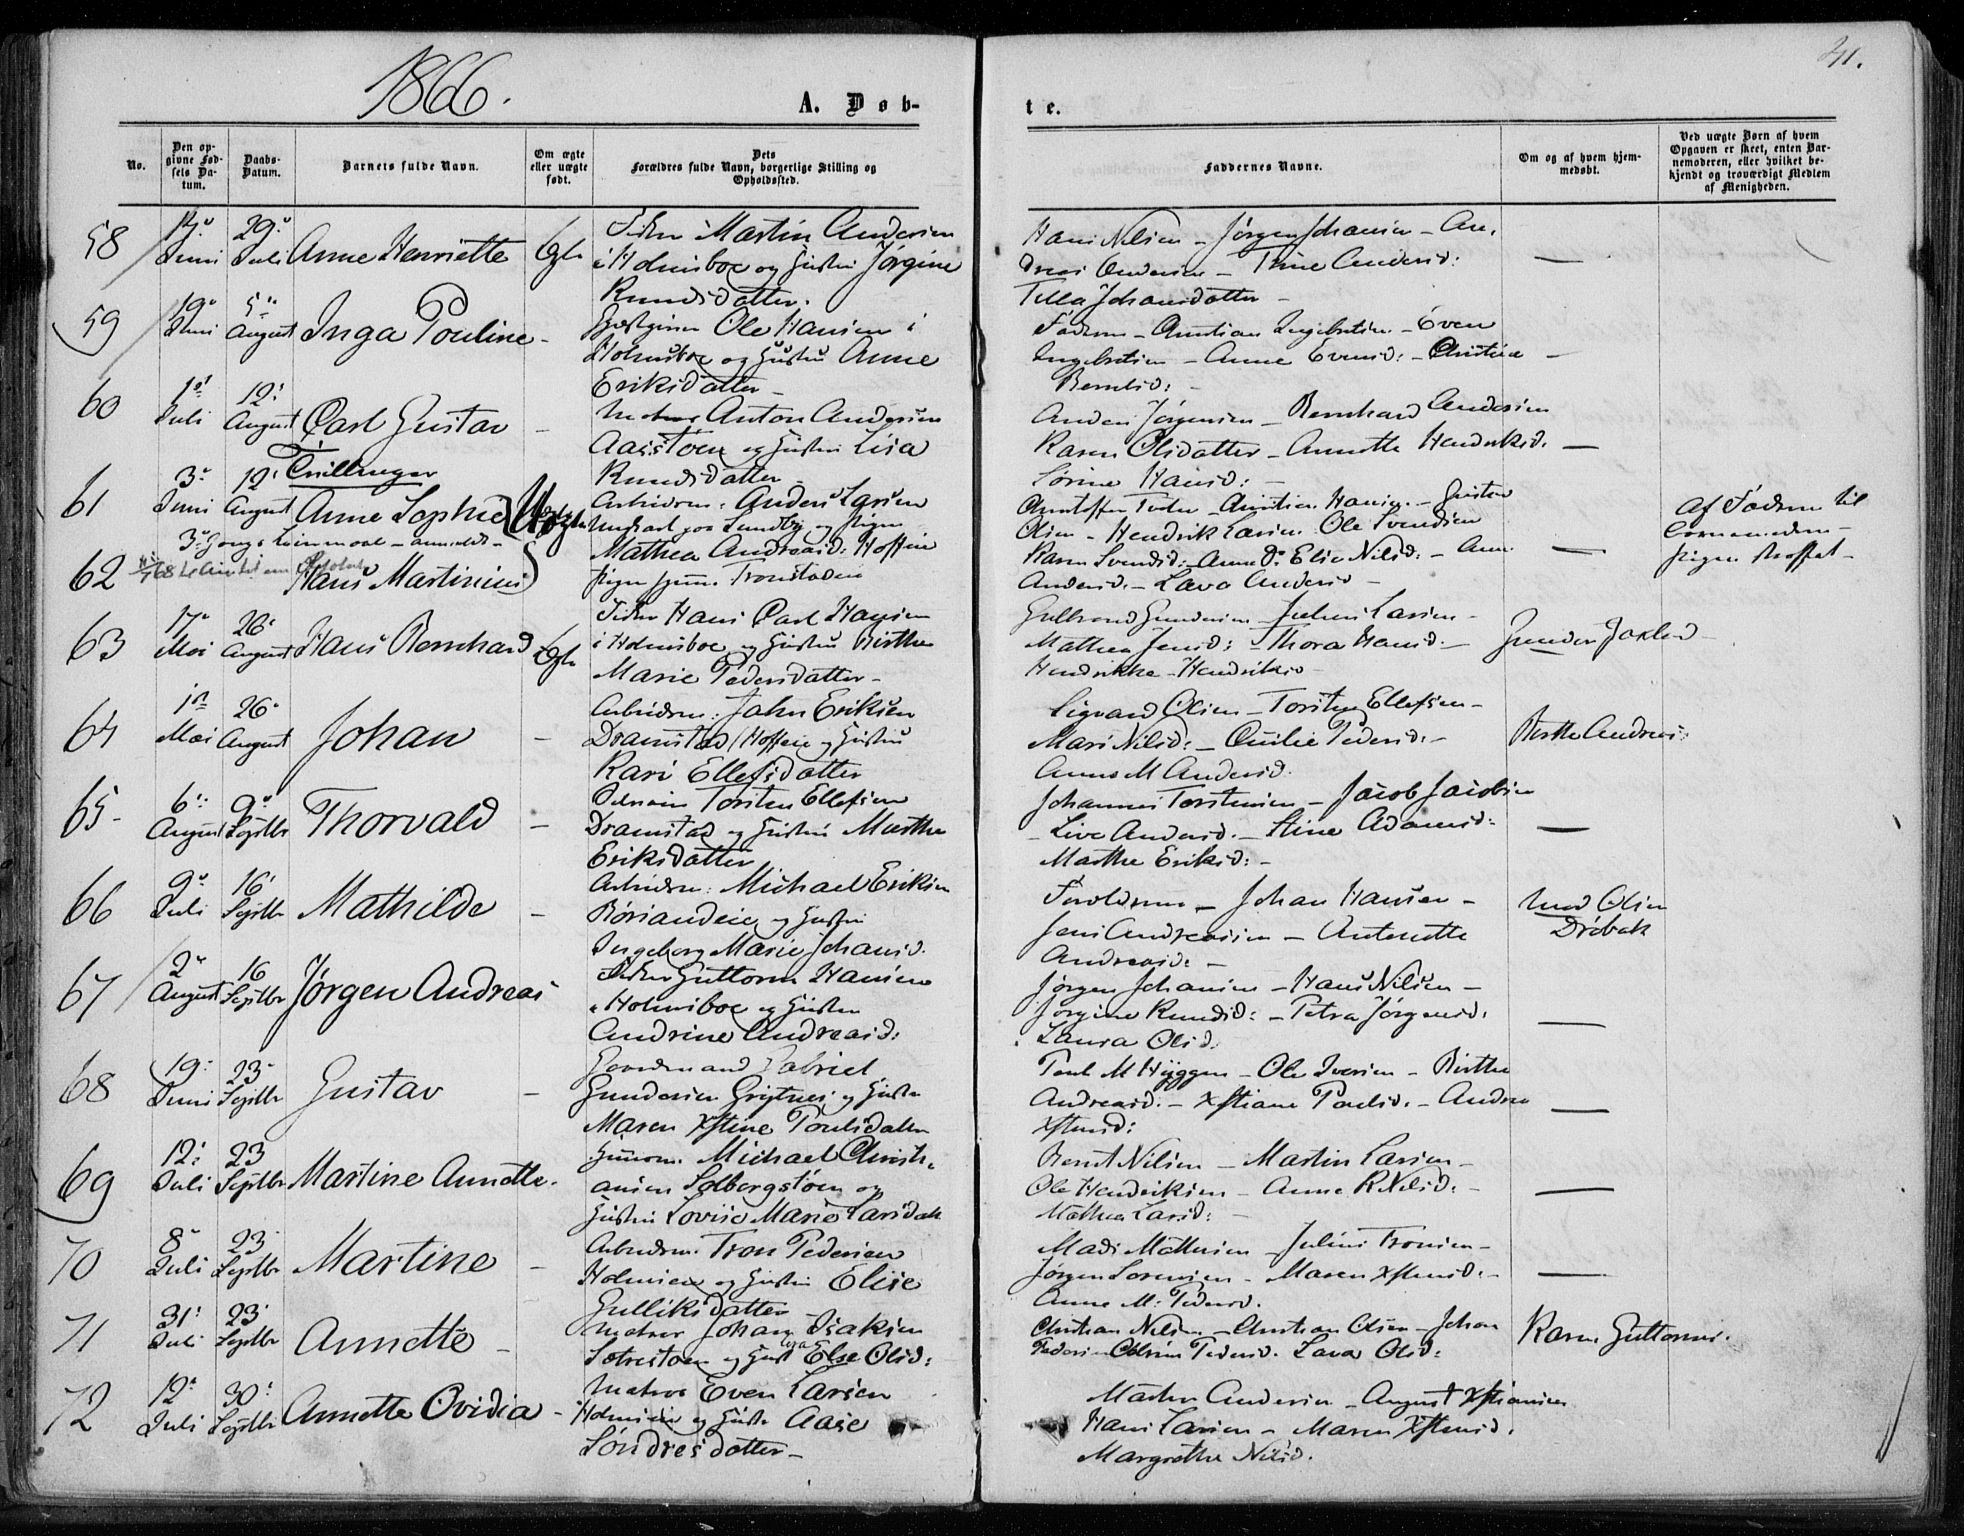 1866.
A. Døb-
te.
41.
No.
Den op-
givne Fød-
sels Da-
tum.
Daabs-
Datum.
Barnets fulde Navn.
Om ægte
eller uægte
født.
Dets
Forældres fulde Navn, borgerlige Stilling og
Opholdssted.
Faddernes Navne.
Om og af hvem hjem-
medøbt.
Ved uægte Børn af hvem
Opgaven er skeet, enten Bar-
nemoderen, eller hvilket be-
kjendt og troværdigt Medlem
af Menigheden.
58
Juni
29
Juli
Anne Henriette
Ægte
Martin Andersen
i Holmsboe og Hustru Jørgine
Knudsdatter.
Hans Nilsen - Jørgen Johansen - An-
dreas Andersen - Trine Andersd:
Johansdatter -
59
19
Juni
5
August
Inga Pouline -
Ole Hansen i
Holmsboe og Hustru Anne
Eriksdatter -
Faderen - Christian Engebretsen - Even
Engebretsen - Anne Evensd: - Christine -
Berntsd: -
60
1st
Juli
12
August
Carl Gustav -
Matros Anton Andersen
og Hustru Lisa
Knudsdatter
Jørgensen - Bernhard Andersen
Karen Olsdatter - Annette Hendriksd. -
Hansd: -
Tvillinger
61
3
Juni
12
August
Anne Sophie
Uægte
Arbeidsm: Anders Larsen
Ungkarl paa Sundby og Pigen
Mathea Andreasd: Hoffseie
Christian Hansen -
Olsen - Hendrik Larsen Ole Svendsen
Karen Svendsd: Elise Nilsd: -
Andersd. - Lava Andersd -
Af Faderen til
Barnemoderen -
3 Gangs Leiermaal - anmeldt -
62
Hans Martinius
63
17
Mai
26
August
Hans Bernhard
Ægte
Hans Carl Hansen
i Holmsboe og Hustru Birthe
Marie Pedersdatter -
Gulbrand Gundersen - Julius Larsen -
Mathea Jensd: - Thora Hansd. -
Hendrikke Hendriksd
64
1st
Mai
26
August
Johan
-
Arbeidsm: John Eriksen
Dramstad Hoffseie og Hustru
Kari Ellefsdatter
Sigvard Olsen - Torsten Ellefsen -
Mari Nilsd: - Pedersd: -
Anne M Andersd.
Birthe Andreas:
65 -
6
August
9
Septbr
Thorvald
-
Torsten Ellefsen
Dramstad og Hustru Marthe
Eriksdatter
Johannes Torstensen - Jacob Jacobsen
- Live Andersd. - Stine Adamsd: -
Marthe Eriksd: -
66
9
Juli
16
Septbr
Mathilde -
Arbeidsm: Michael Eriksen
og Hustru
Ingeborg Marie Johansd.
Forældrene - Johan Hansen -
Jens Andreasen - Antonette
Andreasd: -
Olsen
Drøbak
67
2
August
16
Septbr
Jørgen Andreas
Guttorm Hansen
i Holmsboe og Hustru
Andrine Andreasd:
Jørgen Johansen - Hans Nilsen -
Jørgine Knudsd: - Petra Jørgensd: -
Laura Olsd:
68
19
Juni
23
Septbr
Gustav -
Gaardmand Gabriel
Gundersen Grytnes og Hustru
Maren Xstine Poulsdatter
Poul M Hyggen - Ole Iversen - Birthe
Andreasd: - Xstiane Poulsd. - Andrea -
Xstensd:
69
12
Juli
23
Septbr
Martine Annette.
Michael Christi-
ansen Solbergstøen og
Hustru Lovise Marie Larsdatt
Bernt Nilsen - Martin Larsen -
Ole Hendriksen - Anne K Nilsd: - -
Mathea Larsd: -
70
8
Juli
23
Septbr
Martine -
Arbeidsm. Tron Pedersen
Holmsen og Hustru Elise
Gulliksdatter
Mads Mathisen - Julius Tronsen -
Jørgen Sorensen - Maren Xstensd: - -
Anne M: Pedersd.
71
31
Juli
23
Septbr
Annette -
Matros Johan Isaksen
og Hust Else Olsd:
Christian Nilsen - Christian Olsen - Johan
Pedersen Pedersd. Lava Olsd:
Karen Guttorms.
72
12
Juli
30
Septbr
Annette Ovidia -
Matros Even Larsen
og Hustr Aase
Søndresdatter -
Andersen - August Xstiansen
Hans Larsen - Maren Xstensd.
Margrethe Nilsd.